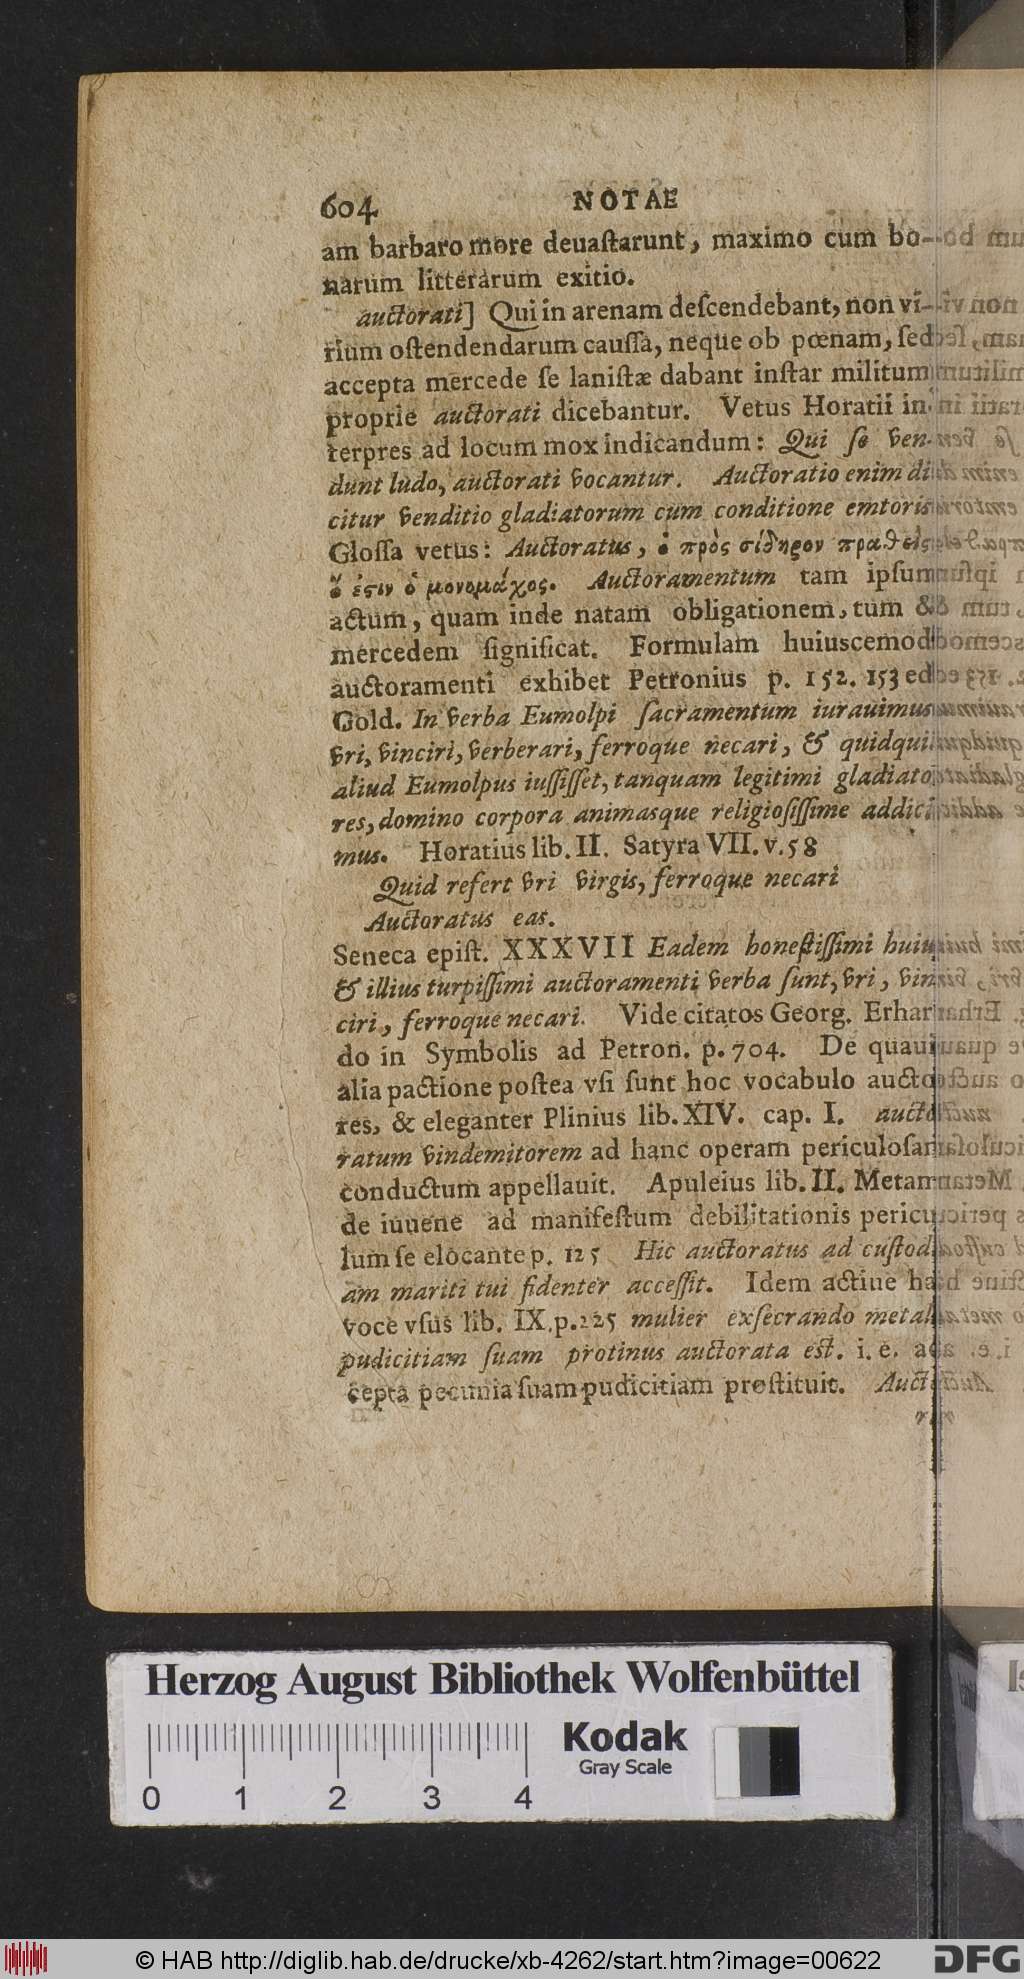 604 NOTAE
am barbaro more deuaſtarunt, maximo cum bo-
narum litterarum exitio.
auctorati] Qui in arenam deſcendebant, non vi-
rium oſtendendarum cauſſa, neque ob pœnam, ſed
accepta mercede ſe laniſtæ dabant inſtar militum
proprie auctorati dicebantur. Vetus Horatii in-
terpres ad locum mox indicandum: Qui ſe ven-
dunt ludo, auctorati vocantur. Auctoratio enim di
citur venditio gladiatorum cum conditione emtoris
Gloſſa vetus: Auctoratus, ὁ πρὸς σίδηρον πραθεὶς
ὅ ἐστιν ὁ μονομάχος. Auctoramentum tam ipſum
actum, quam inde natam obligationem, tum &
mercedem ſignificat. Formulam huiuscemod
auctoramenti exhibet Petronius p. 152. 153 ed
Gold. In verba Eumolpi ſacramentum iurauimus
vri, vinciri, verberari, ferroque necari, & quidqui
aliud Eumolpus iuſſiſſet, tanquam legitimi gladiato
res, domino corpora animasque religioſiſſime addici
mus. Horatius lib. II. Satyra VII. v. 58
Quid refert vri virgis, ferroque necari
Auctoratus eas.
Seneca epiſt. XXXVII Eadem honeſtiſſimi huiu
& illius turpiſſimi auctoramenti verba ſunt, vri, vin
ciri, ferroque necari. Vide citatos Georg. Erhar
do in Symbolis ad Petron. p. 704. De quaui
alia pactione poſtea vſi ſunt hoc vocabulo aucto
res, & eleganter Plinius lib. XIV. cap. I. aucto
ratum vindemitorem ad hanc operam periculoſam
conductum appellauit. Apuleius lib. II. Metam
de iuuene ad manifeſtum debilitationis pericu
lum ſe elocante p. 125 Hic auctoratus ad cuſtodi
am mariti tui fidenter acceſſit. Idem actiue ha
voce vſus lib. IX. p. 225 mulier exſecrando metal
pudicitiam ſuam protinus auctorata eſt. i. e. ac
cepta pecunia ſuam pudicitiam proſtituit. Aucto
Herzog August Bibliothek Wolfenbüttel
Kodak
Gray Scale
0 1 2 3 4
© HAB http://diglib.hab.de/drucke/xb-4262/start.htm?image=00622
DFG